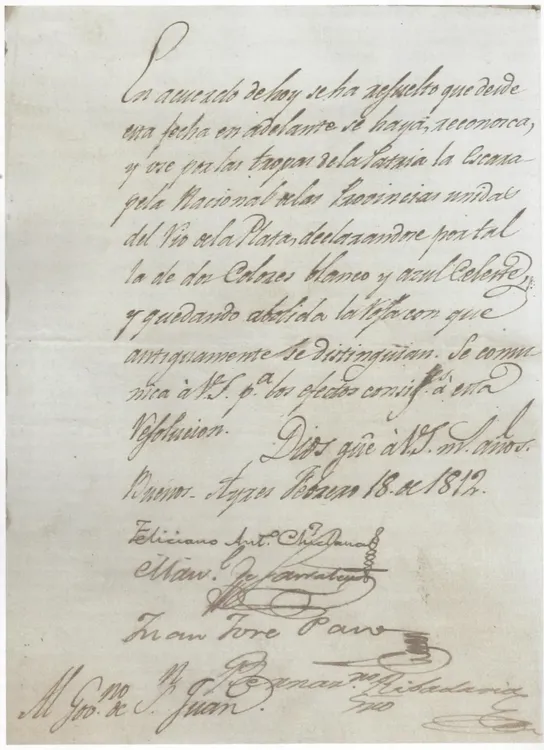 En acuerdo de hoy se ha resuelto que desde
esta fecha en adelante se haya, reconozca,
y use por las tropas de la Patria la Escara-
pela Nacional de las Provincias unidas
del Rio de la Plata, declarandose por tal
la de dos Colores blanco y azul Celeste,
y quedando abolida la roja con que
antiguamente se distinguian. Se comu-
nica à V.S. p.a los efectos consig.s à esta
Resolucion.
Dios gũe à V.S. m.s años.
Buenos-Ayres Febrero 18. de 1812.
Feliciano Ant.o Chiclana
Man.l de Sarratea
Juan Jose Paso
Bernar.no Ribadavia
Srio
Al Gov.no de S.n Juan.